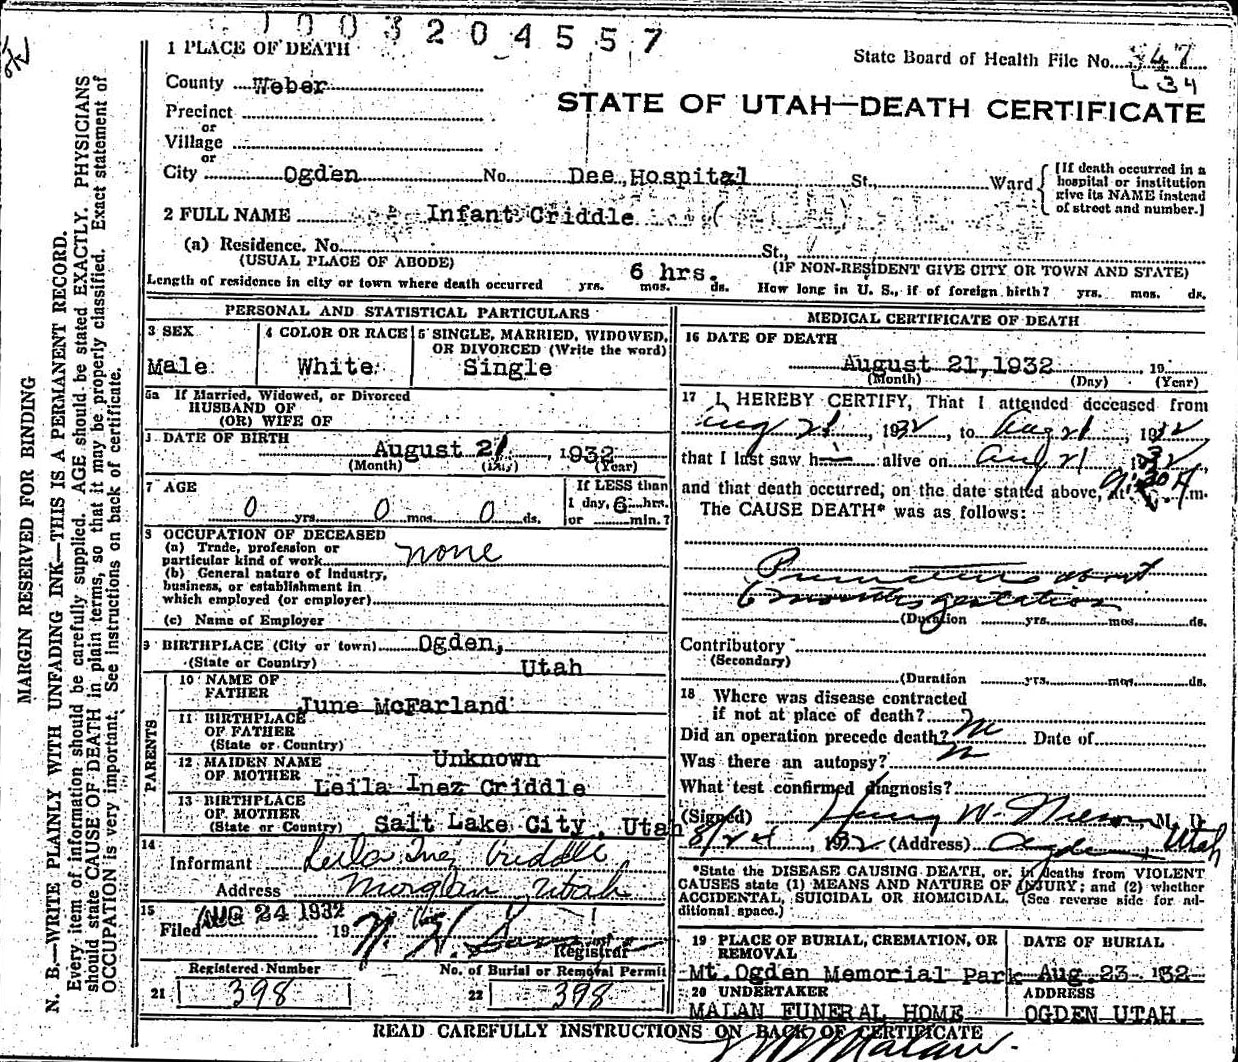 1003204557
1 PLACE OF DEATH
State Board of Health File No. 347
L 34
County Weber
STATE OF UTAH—DEATH CERTIFICATE
Precinct
or
Village
or
City Ogden No. Dee Hospital St., Ward
[If death occurred in a hospital or institution give its NAME instead of street and number.]
2 FULL NAME Infant Criddle
(a) Residence. No. St.,
(USUAL PLACE OF ABODE) (IF NON-RESIDENT GIVE CITY OR TOWN AND STATE)
6 hrs.
Length of residence in city or town where death occurred yrs. mos. ds. How long in U. S., if of foreign birth? yrs. mos. ds.
PERSONAL AND STATISTICAL PARTICULARS
3 SEX
Male
4 COLOR OR RACE
White
5 SINGLE, MARRIED, WIDOWED,
OR DIVORCED (Write the word)
Single
5a If Married, Widowed, or Divorced
HUSBAND OF
(OR) WIFE OF
DATE OF BIRTH
August 21, 1932
(Month) (Day) (Year)
7 AGE
0 yrs. 0 mos. 0 ds.
If LESS than
1 day, 6 hrs.
or min.?
8 OCCUPATION OF DECEASED
(a) Trade, profession or
particular kind of work none
(b) General nature of industry,
business, or establishment in
which employed (or employer)
(c) Name of Employer
9 BIRTHPLACE (City or town) Ogden,
(State or Country) Utah
PARENTS
10 NAME OF
FATHER
June McFarland
11 BIRTHPLACE
OF FATHER
(State or Country)
Unknown
12 MAIDEN NAME
OF MOTHER
Leila Inez Criddle
13 BIRTHPLACE
OF MOTHER
(State or Country) Salt Lake City, Utah
14
Informant Leila Inez Criddle
Address Morgan, Utah
15
Filed AUG 24 1932 19
Registrar
Registered Number
21 398
No. of Burial or Removal Permit
22 398
MEDICAL CERTIFICATE OF DEATH
16 DATE OF DEATH
August 21, 1932 19
(Month) (Day) (Year)
17 I HEREBY CERTIFY, That I attended deceased from
Aug 21, 1932, to Aug 21, 1932
that I last saw h alive on Aug 21 1932
and that death occurred, on the date stated above, at 9:30 A. m.
The CAUSE DEATH* was as follows:
Premature about
6 months gestation
(Duration yrs. mos. ds.
Contributory
(Secondary)
(Duration yrs. mos. ds.
18 Where was disease contracted
if not at place of death?
Did an operation precede death? no Date of
Was there an autopsy? no
What test confirmed diagnosis?
(Signed) Henry W. Nelson, M. D.
8/24, 1932 (Address) Ogden, Utah
*State the DISEASE CAUSING DEATH, or, in deaths from VIOLENT
CAUSES state (1) MEANS AND NATURE OF INJURY; and (2) whether
ACCIDENTAL, SUICIDAL OR HOMICIDAL. (See reverse side for ad-
ditional space.)
19 PLACE OF BURIAL, CREMATION, OR
REMOVAL
Mt. Ogden Memorial Park
DATE OF BURIAL
Aug. 23 1932
20 UNDERTAKER
MALAN FUNERAL HOME
ADDRESS
OGDEN UTAH.
READ CAREFULLY INSTRUCTIONS ON BACK OF CERTIFICATE
Malan.
MARGIN RESERVED FOR BINDING
N. B.—WRITE PLAINLY WITH UNFADING INK—THIS IS A PERMANENT RECORD.
Every item of information should be carefully supplied. AGE should be stated EXACTLY. PHYSICIANS
should state CAUSE OF DEATH in plain terms, so that it may be properly classified. Exact statement of
OCCUPATION is very important. See instructions on back of certificate.